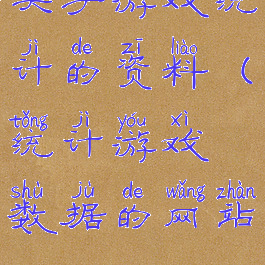 游戏统
jì de zī liào
计的资料（
tǒng jì yóu xì
统计游戏
shù jù de wǎng zhàn
数据的网站